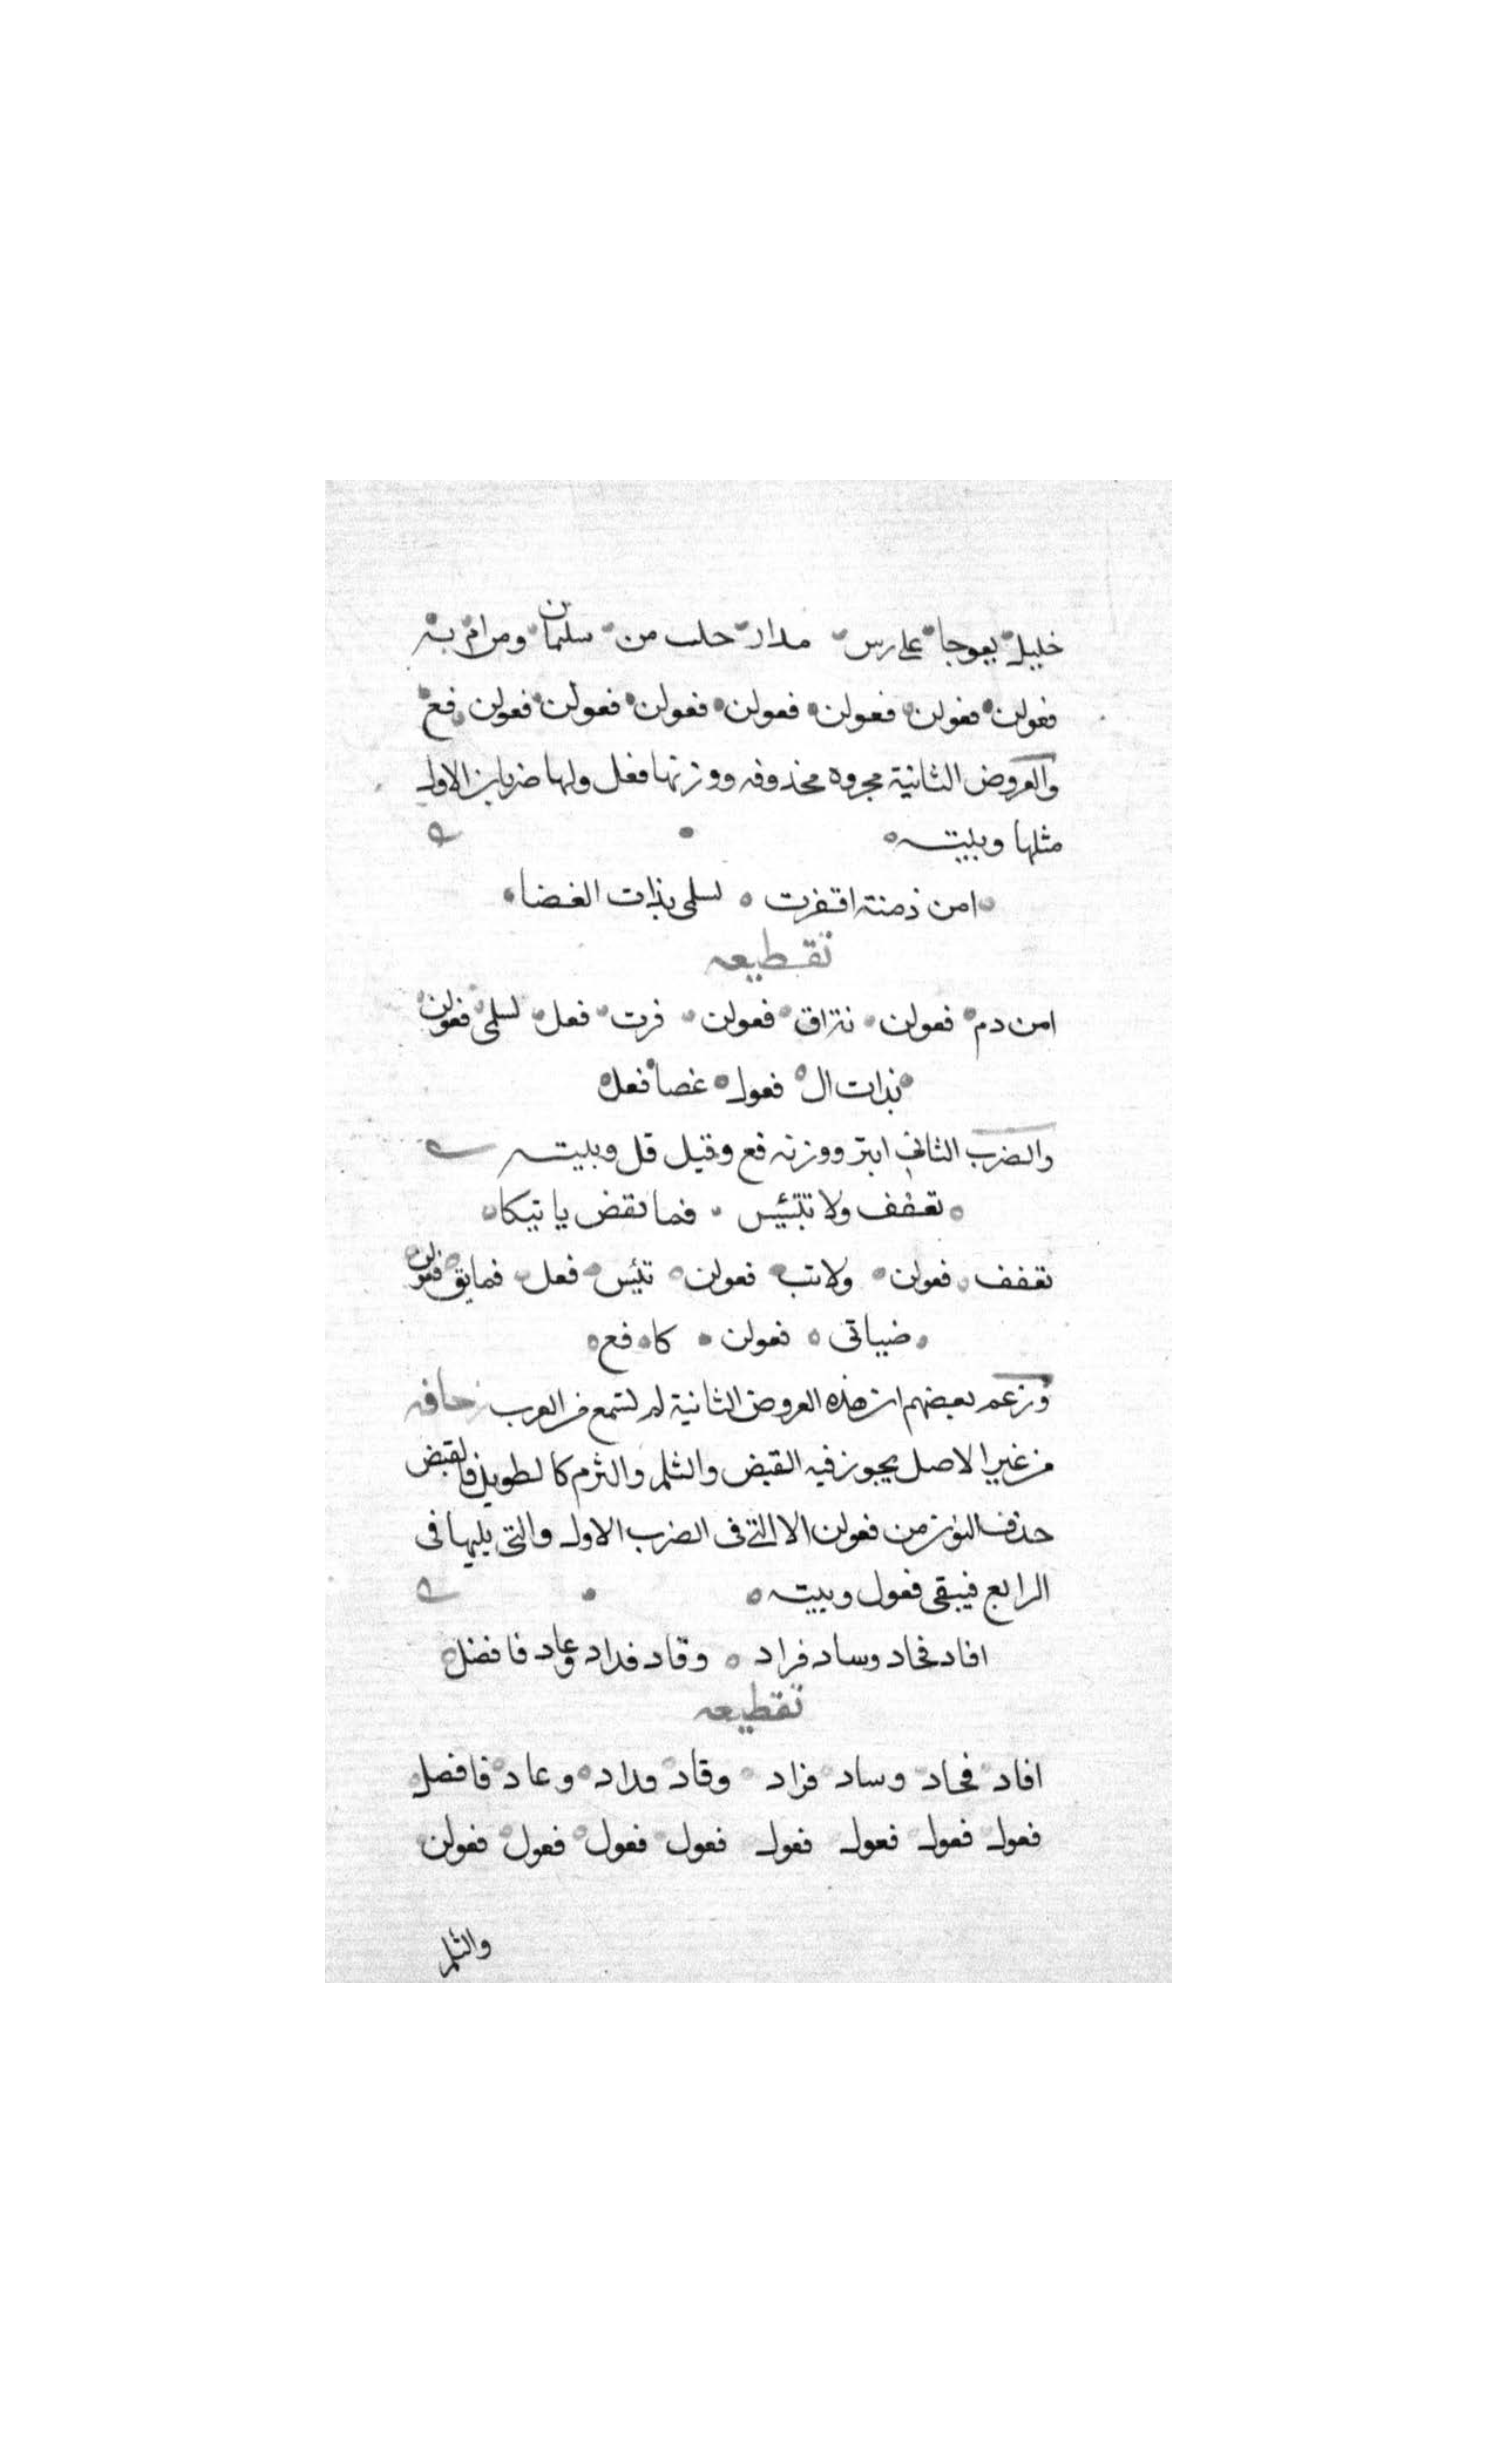 خليلي يعوجا على رس مدار حلت من سليمان ومرام به
فعولن فعولن فعولن فعولن فعولن فعولن فعولن فع
والعروض الثانية مجروه محذوفه ووزنها فعل ولها ضربان الاول
مثلها وبيته
امن دمنة اقفرت لسلمى بذات الغضا
تقطيعه
امن دم فعولن نتن اق فعولن فرت فعل لسلمى فعولن
بذات ال فعول غضا فعل
والضرب الثانى ابتر ووزنه فع وقيل قل وبيته
تعفف ولا تبتئيس فما نقض ياتيكا
تعفف فعولن ولا تب فعولن تئيس فعل فما يق فعولن
ضياتى فعولن كا فع
وزعم بعضهم ان هذه العروض الثانية لم تسمع من العرب زحافه
من غير الاصل يجوز فيه القبض والثلم والثرم كالطويل فالقبض
حذف النون من فعولن الا التى فى الضرب الاول والتى يليها فى
الرابع فيبقى فعول وبيته
افاد فجاد وساد فزاد وقاد فداد وعاد فافضل
تقطيعه
افاد فجاد وساد فزاد وقاد فداد وعاد فافضل
فعول فعول فعول فعول فعول فعول فعول فعولن
والثلم